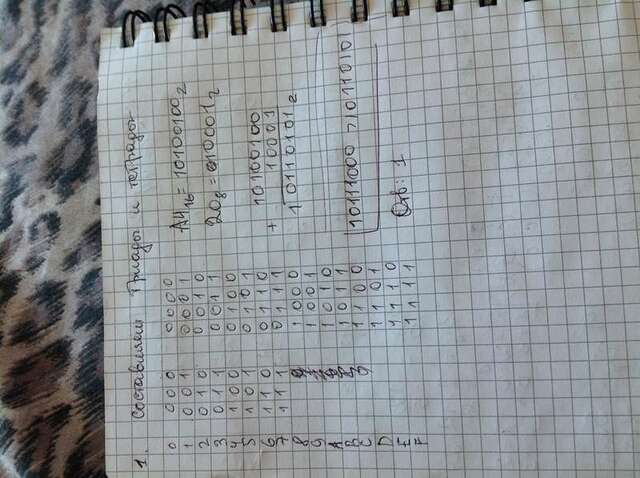 1. Составляем триады и тетрады
0 000 0000
1 001 0001
2 010 0010
3 011 0011
4 100 0100
5 101 0101
6 110 0110
7 111 0111
8 1000
9 1001
A 1010
B 1011
C 1100
D 1101
E 1110
F 1111
A4₁₆ = 10100100₂
20₈ = 010001₂
10100100
+ 10001
10110101₂
10111000 > 10110101
Отв: 1